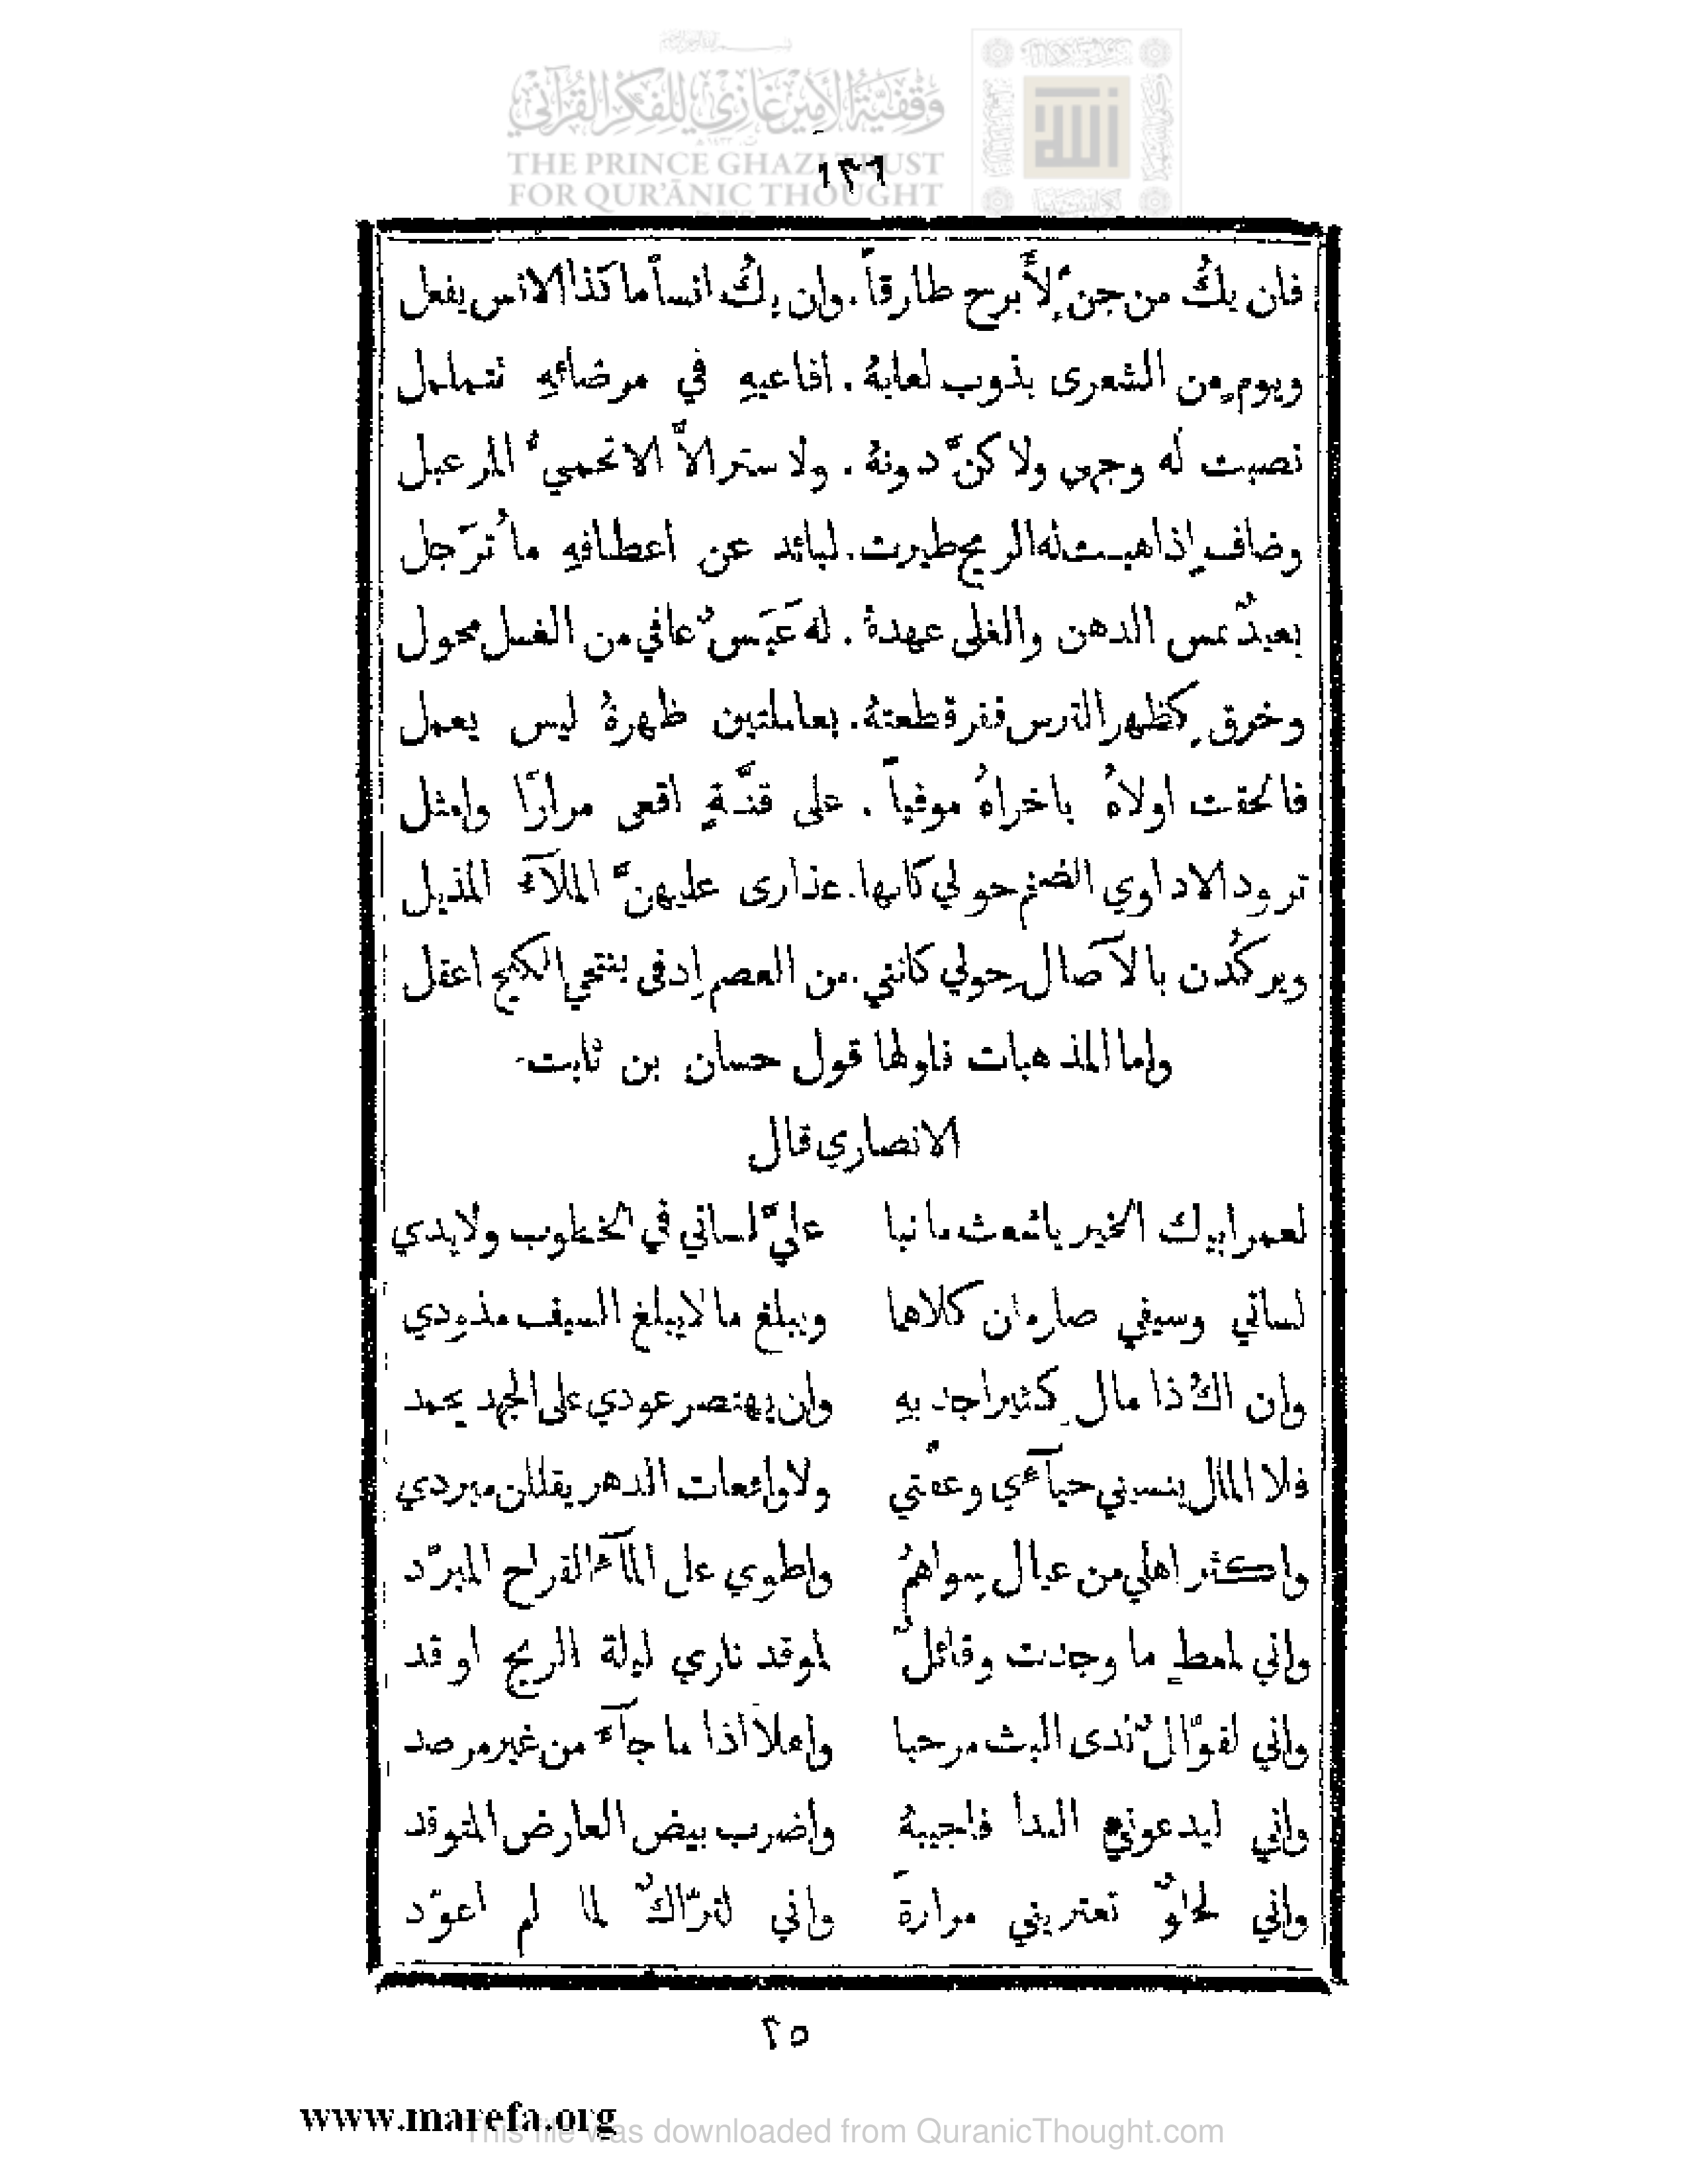 وقفية الأمير غازي للفكر القرآني
THE PRINCE GHAZI TRUST
FOR QUR'ĀNIC THOUGHT
١٣٦
فان يكُ من جنٍ لأَبرح طارقاً . وان يكُ انساً ما كذا الانس يفعل
ويومٍ من الشعرى يذوب لعابهُ . افاعيهِ في مرضائهِ تتململ
نصبت له وجهي ولا كنَّ دونهُ . ولا ستر الاَّ الاتحميُّ المرعبل
وضافٍ اذا هبت له الريح طيرت . لبائد عن اعطافهِ ما تُرَجل
بعيدٌ بمس الدهن والفلى عهدهُ . له عَبَسٌ عافي من الغسل محول
وخرقٍ كظهر الترس قفر قطعتهُ . بعاملتين ظهرهُ ليس يعمل
فالحقت اولاهُ باخراهُ موفياً . على قنَّةٍ اقعى مرارًا وامثل
ترود الاداوي الضخم حولي كانها . عذارى عليهنَّ الملآء المذيل
ويركُدن بالآصال حولي كانني . من العصم ادفى ينتحي الكيح اعقل
واما المذهبات فاولها قول حسان بن ثابت
الانصاري قال
لعمر ابيك الخير يا شعث ما نبا عليَّ لساني في الخطوب ولا يدي
لساني وسيفي صارمان كلاهما ويبلغ ما لا يبلغ السيف مذودي
وان اكُ ذا مالٍ كثير اجد بهِ وان يهتصر عودي على الجهد يحمد
فلا المال ينسيني حيآءي وعفَّتي ولا واقعات الدهر يفللن مبردي
واكثر اهلي من عيالٍ سواهمُ واطوي على المآء القراح المبرَّد
واني لمعطٍ ما وجدت وقائلٌ لموقد ناري ليلة الريح اوقد
واني لقوَّالٌ لدى البث مرحبا واهلاً اذا ما جآء من غير مرصد
واني ليدعوني الندا فاجيبهُ واضرب بيض العارض المتوقد
واني لحلوٌ تعتريني مرارةَ واني لترَّاكٌ لما لم اعوَّد
٢٥
www.marefa.org
This file was downloaded from QuranicThought.com